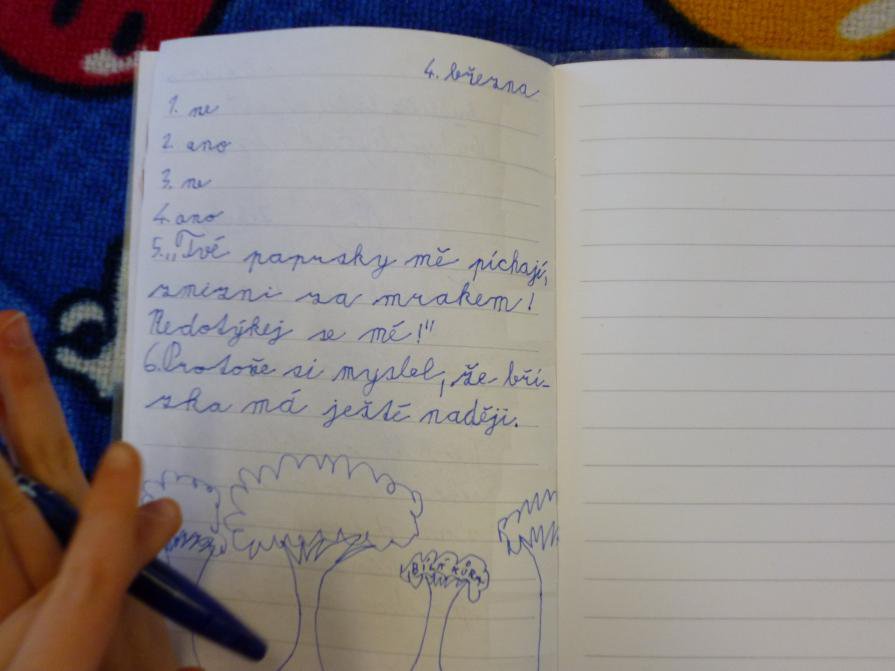 4. března
1. ne
2. ano
3. ne
4. ano
5. „Tvé paprsky mě píchají,
zmizni za mrakem!
Nedotýkej se mé!"
6. Protože si myslel, že bří-
zka má ještě naději.
BÍLÁ KŮRA